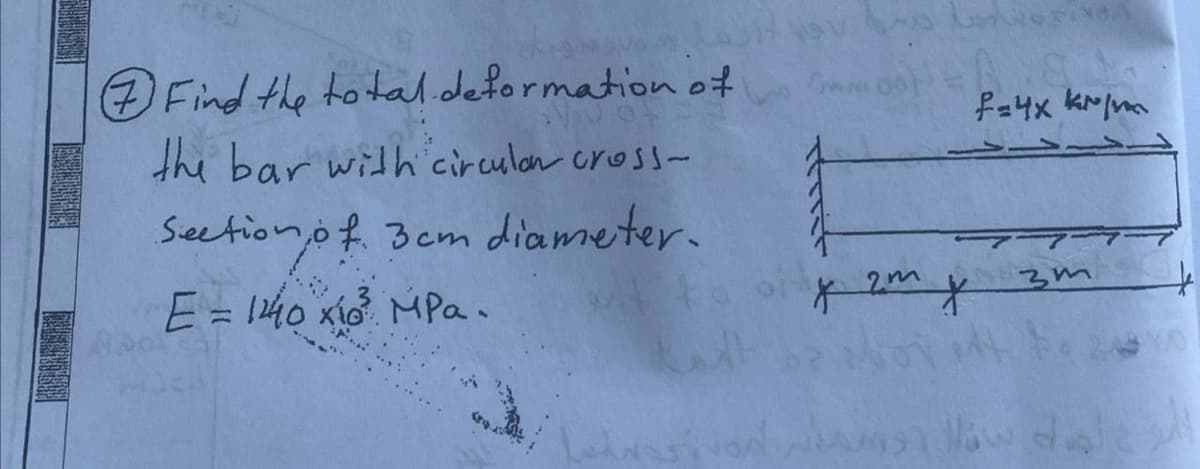 ⑦ Find the total deformation of
the bar with circular cross-
section of 3cm diameter.
E = 140 x10³ MPa.
f=4x kN/m
2m 3m